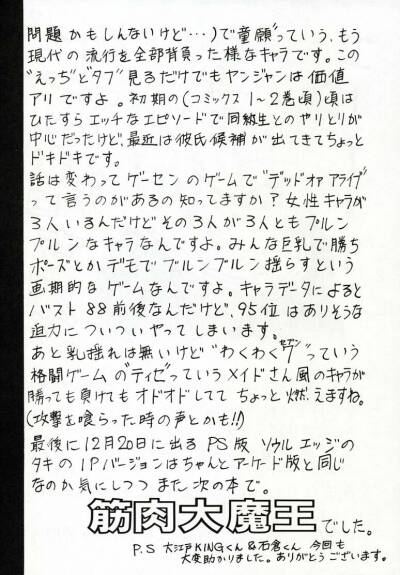 問題かもしんないけど…)で童顔っていう、もう
現代の流行を全部背負った様なキャラです。この
"えっち"とタブ"見るだけでもヤンジャンは価値
アリですよ。初期の(コミックス1〜2巻頃)頃は
ひたすらエッチなエピソードで同納生とのやりとりが
中心だったけど、最近は彼氏候補が出てきてちょっと
ドキドキです。
話は変わってゲーセンのゲームで"デッドオァアライブ"
って言うのがあるの知ってますか?女性キャラが
3人いるんだけどその3人が3人ともプルン
プルンなキャラなんですよ。みんな巨乳で勝ち
ポーズとかデモでブルンブルン揺らすという
画期的なゲームなんですよ。キャラデータによると
バスト88前後なんだけど、95位はありそうな
迫力についついやってしまいます。
あと乳揺れは無いけど"わくわく7セブン"っていう
格闘ゲームの"ティゼ"っていうメイドさん風のキャラが
勝っても負けてもオドオドしてて ちょっと燃えますね。
(攻撃を喰らった時の声とかも!!)
最後に12月20日に出る PS版 ソウルエッジの
タキの1Pバージョンはちゃんとアーケード版と同じ
なのか気にしつつ また次の本で。
筋肉大魔王でした。
P.S 大江戸KINGくん&石倉くん 今回も
大変助かりました。ありがとうございます。